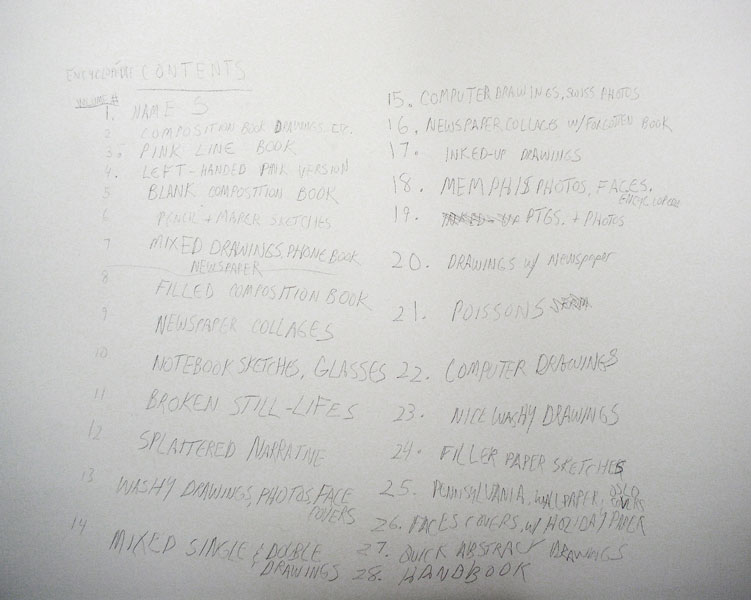 CONTENTS
VOLUME #
1. NAMES
2 COMPOSITION BOOK DRAWINGS, ETC.
3. PINK LINE BOOK
4. LEFT-HANDED PINK VERSION
5 BLANK COMPOSITION BOOK
6 PENCIL + PAPER SKETCHES
7 MIXED DRAWINGS, PHONE BOOK
NEWSPAPER
8 FILLED COMPOSITION BOOK
9 NEWSPAPER COLLAGES
10 NOTEBOOK SKETCHES, GLASSES
11 BROKEN STILL-LIFES
12 SPLATTERED NARRATIVE
13 WASHY DRAWINGS, PHOTOS, FACE
COVERS
14 MIXED SINGLE & DOUBLE
DRAWINGS
15. COMPUTER DRAWINGS, SWISS PHOTOS
16. NEWSPAPER COLLAGES W/ FORGOTTEN BOOK
17. INKED-UP DRAWINGS
18. MEMPHIS PHOTOS, FACES,
19. PTGS. + PHOTOS
20. DRAWINGS w/ Newspaper
21. POISSONS
22. COMPUTER DRAWINGS
23. NICE WASHY DRAWINGS
24. FILLER PAPER SKETCHES
25. PENNSYLVANIA, WALLPAPER,
26. FACES COVERS, W/ HOLIDAY PAPER
27. QUICK ABSTRACT DRAWINGS
28. HANDBOOK